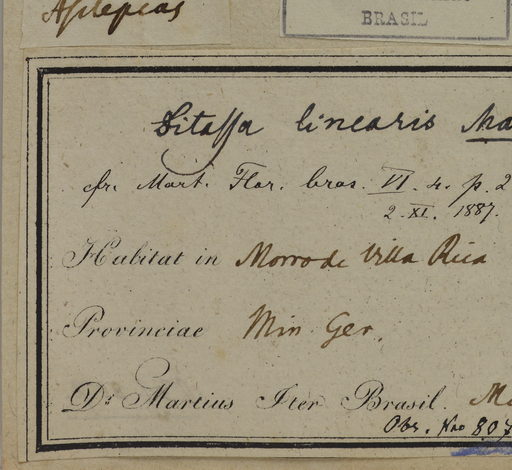 Asclepias
BRASIL
Ditassa linearis Ma
cfr. Mart. Flor. bras. VI. 4. p. 2
2. XI. 1887.
Habitat in Morro de Villa Rica
Provinciae Min. Ger.
Dr. Martius Iter Brasil. M
Obs. Nro 807